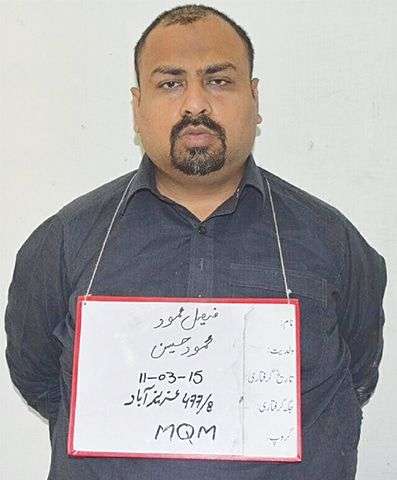 نام: فیصل محمود
ولدیت: محمود حسین
تاریخ گرفتاری 11-03-15
جگہ گرفتاری 477/8 عزیز آباد
گروپ MQM